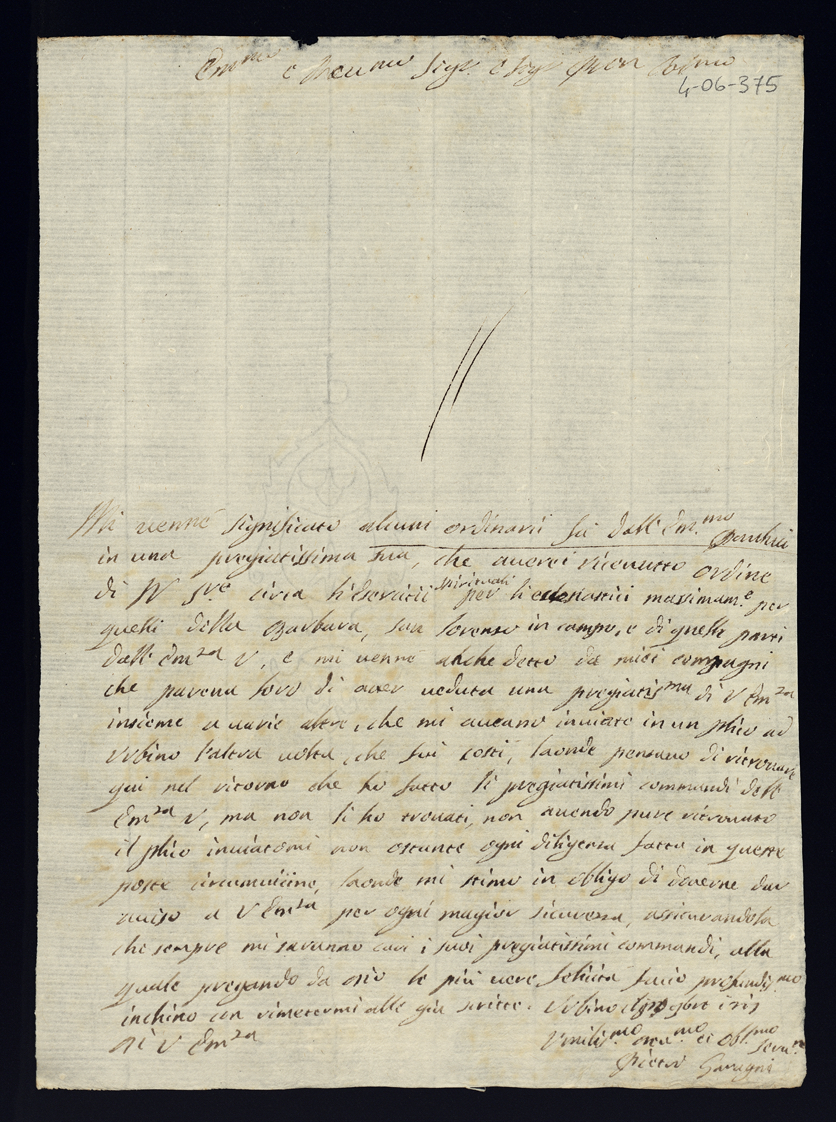 Em.mo e Reu.mo Sig.r e Sig.r Pron
4-06-375
Mi venne significato alcuni ordinarii fà dall' Em.mo
in una pregiatissima sua, che averei riceuutto ordine
di N S.re circa li Esercitii spirituali per li eclesiastici massimam.e per
quelli della Barbara, san Lorenso in campo, e di quelle parti
dall' Em.za V, e mi venne anche detto da miei compagni
che pareua loro di aver ueduta una pregiatis.ma di V Em.za
insieme a uarie altre, che mi aueano inuiate in un plico ad
Urbino l'altra uolta, che fui costì, laonde pensauo di ritrouarli
qui nel ritorno che ho fatto li pregiatissimi commandi dell'
Em.za V, ma non li ho trouati, non auendo pure ritrouato
il plico inuiatomi non ostante ogni diligensa fatta in queste
poste circumuicine, laonde mi stimo in obligo di douerne dar
auiso a V Em.za per ogni magior sicuressa, assicurandola
che sempre mi saranno cari i suoi pregiatissimi commandi, alla
quale pregando da Dio le più uere felicità facio profondis.mo
inchino con rimetermi alle già scritte. Urbino
Di V Em.za Umilis.mo deu.mo et Obl.mo Seru.re